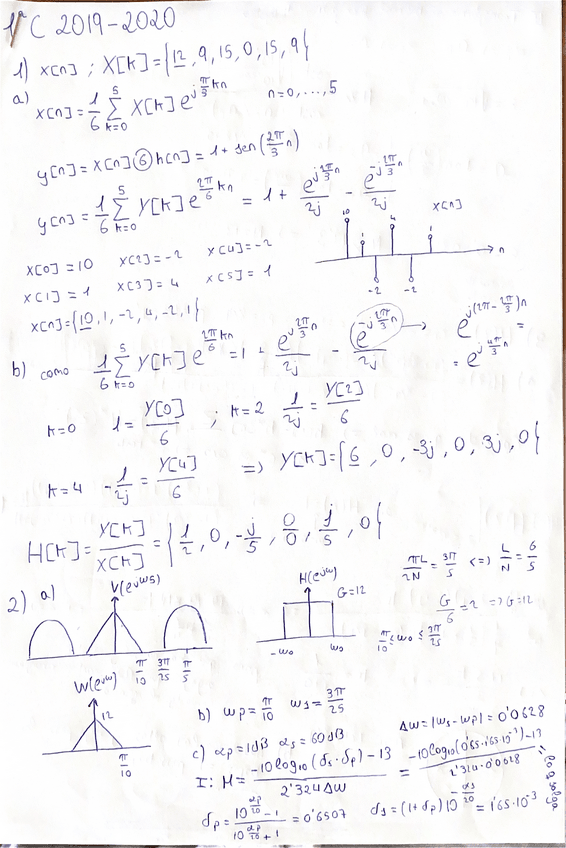 1ª C 2019-2020
1) x[n] ; X[k] = {12, 9, 15, 0, 15, 9}
a) x[n] = 1/6 Σ_{k=0}^{5} X[k] e^{j π/3 kn} n=0,...,5
y[n] = x[n] ⑥ h[n] = 1 + sen(2π/3 n)
y[n] = 1/6 Σ_{k=0}^{5} Y[k] e^{2π/6 kn} = 1 + e^{j 2π/3 n}/2j - e^{-j 2π/3 n}/2j
x[0] = 10 x[2] = -2 x[4] = -2
x[1] = 1 x[3] = 4 x[5] = 1
x[n] = {10, 1, -2, 4, -2, 1}
10 1 4 1 x[n]
-2 -2 n
b) como 1/6 Σ_{k=0}^{5} Y[k] e^{2π/6 kn} = 1 - e^{j 2π/3 n}/2j e^{-j 2π/3 n}/2j → e^{j(2π - 2π/3)n} =
= e^{j 4π/3 n}
k=0 1 = Y[0]/6 ; k=2 1/2j = Y[2]/6
k=4 -1/2j = Y[4]/6 => Y[k] = {6, 0, -3j, 0, 3j, 0}
H[k] = Y[k]/X[k] = {1/2, 0, -j/5, 0/0, j/5, 0}
πL/2N = 3π/5 <=> L/N = 6/5
2) a) V(e^{jω5}) H(e^{jω}) G=12
G/6 = 2 => G=12
π/10 ≤ ω0 ≤ 3π/25
π/10 3π/25 π/5 -ω0 ω0
W(e^{jω})
12
π/10
b) ωp = π/10 ωs = 3π/25
c) αp = 1dB αs = 60dB Δω = |ωs - ωp| = 0'0628
I: M = (-10log10(δs·δp) - 13)/(2'324Δω) = (-10log10(0'65·1'65·10^-3) - 13)/(2'324·0'0628)
δp = (10^{αp/20} - 1)/(10^{αp/20} + 1) = 0'6507 δs = (1+δp)10^{-αs/20} = 1'65·10^-3